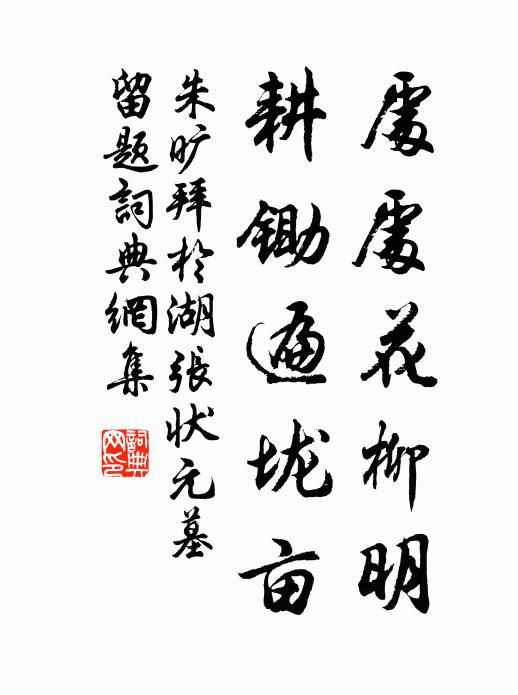 處處花柳明
耕鋤遍垅亩
朱旷拜於湖張状元墓
留题詞典網集
詞典
网印